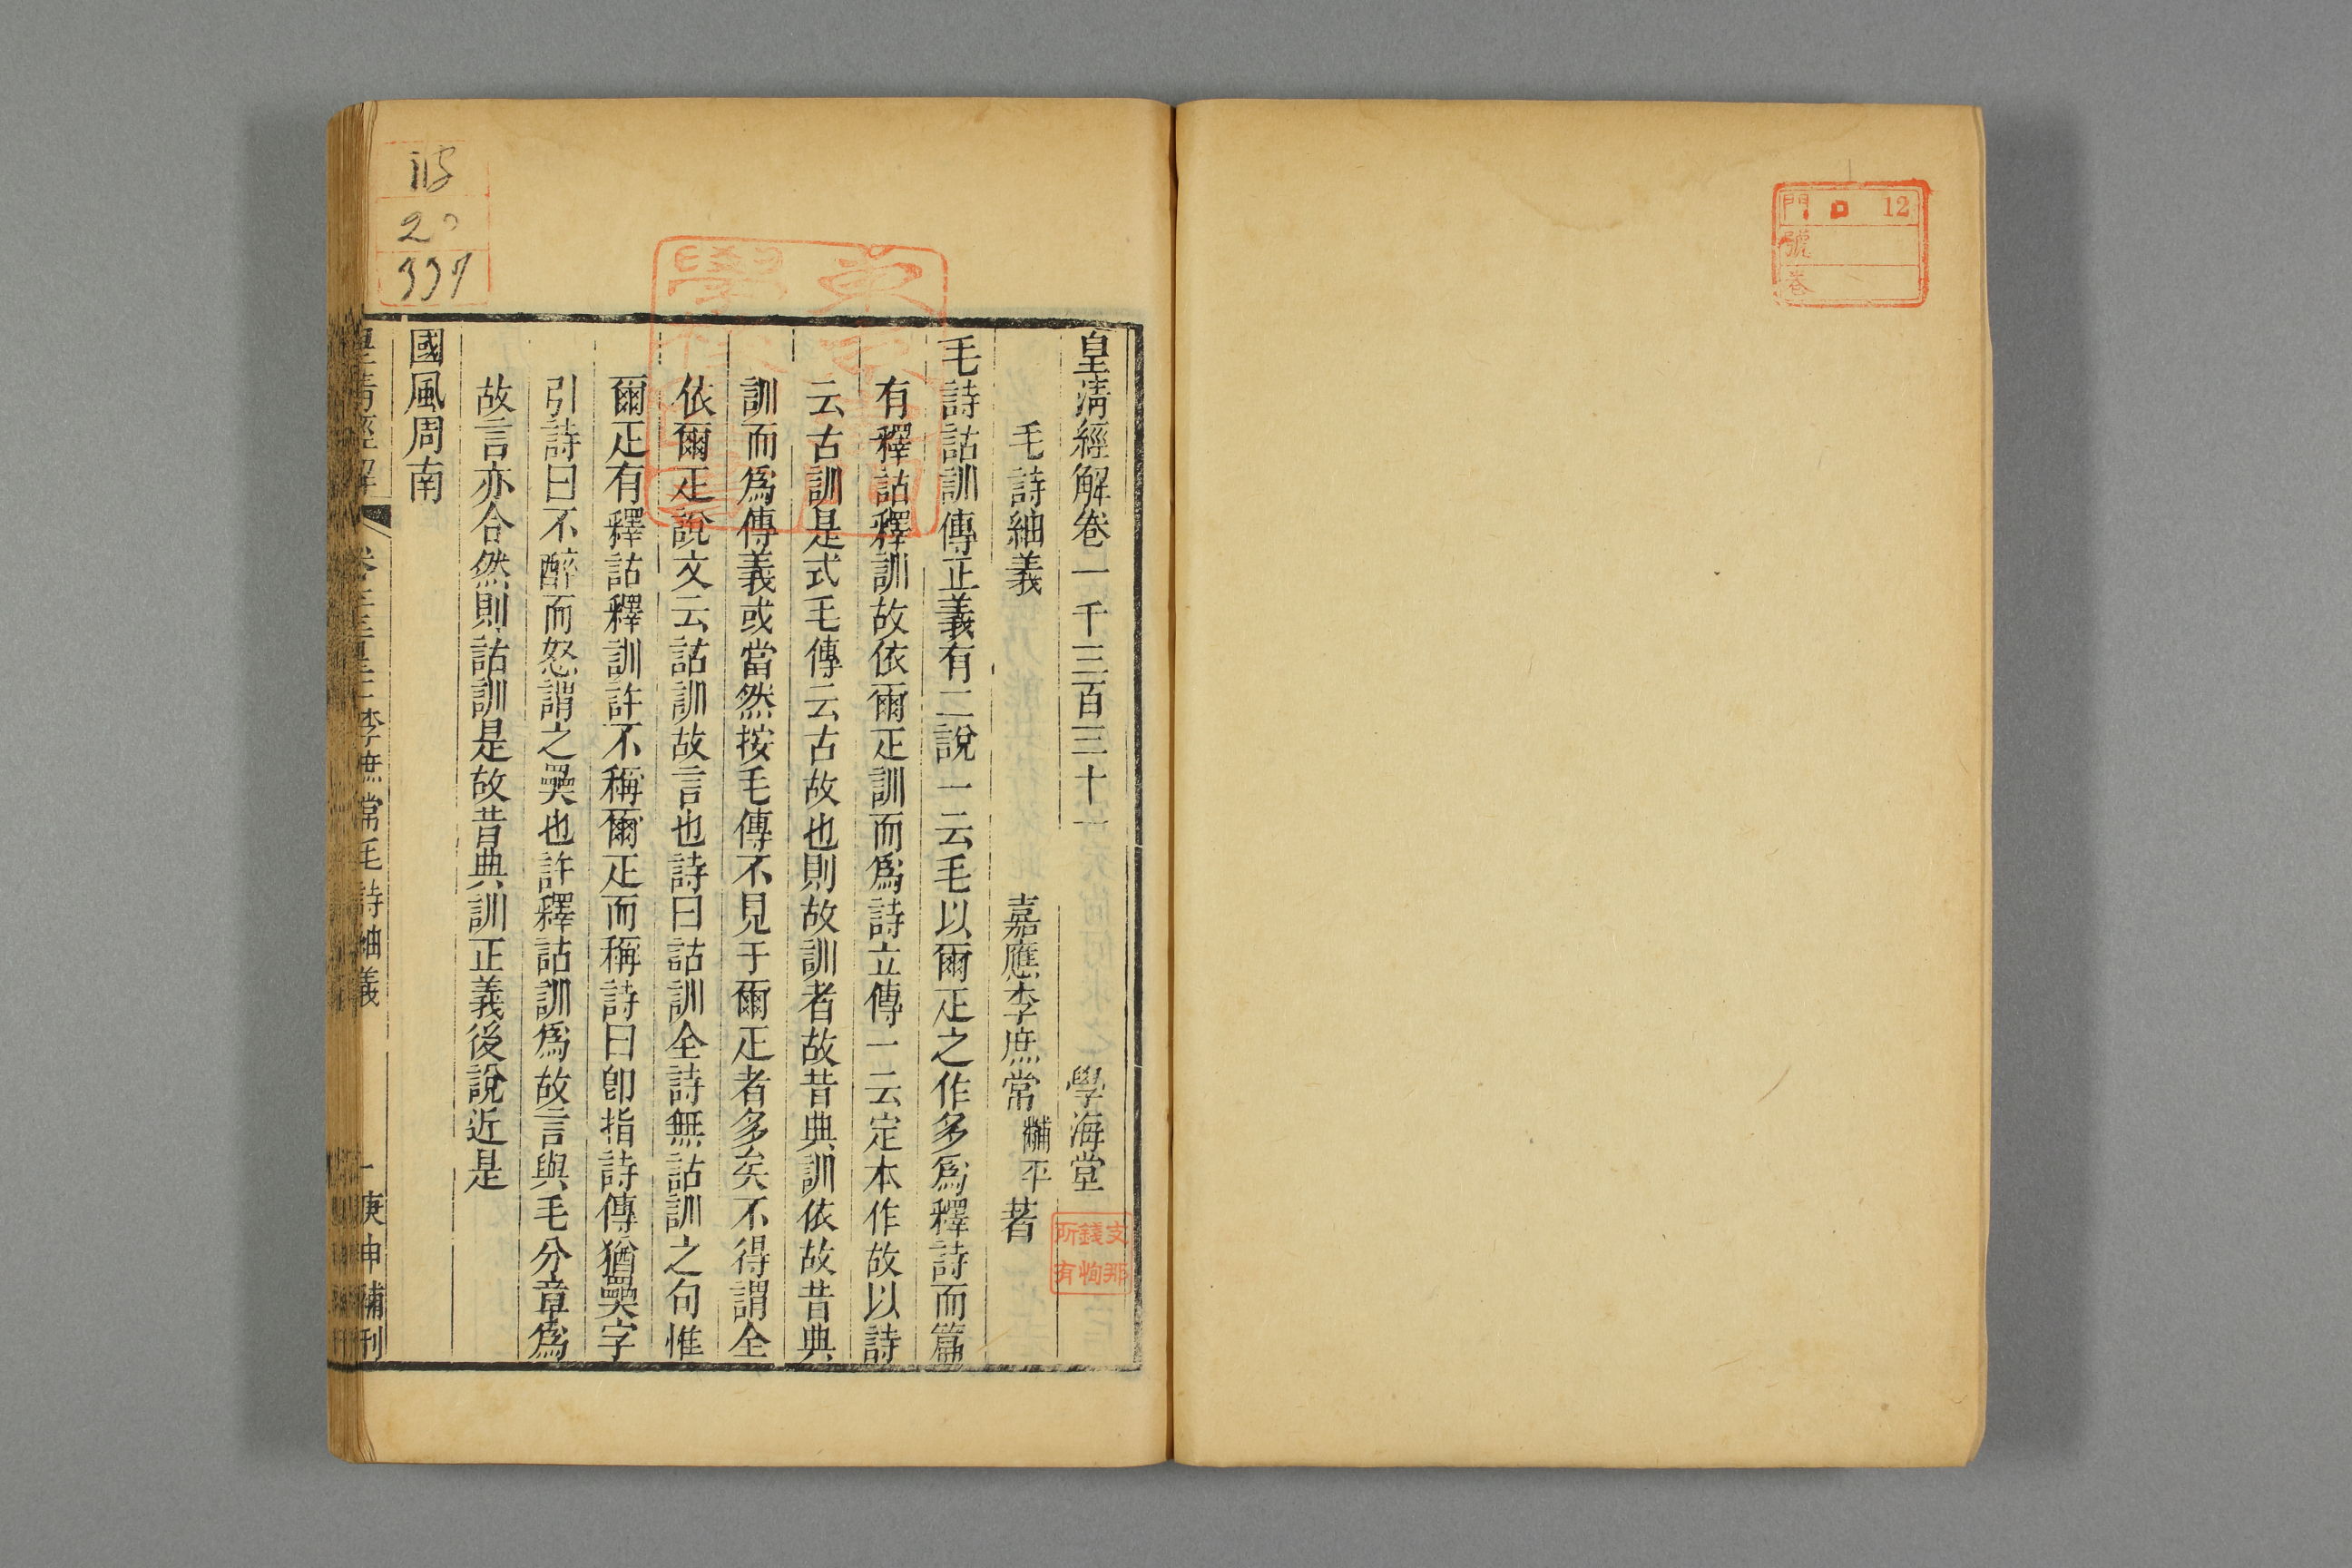 門 口 12
號
卷
皇淸經解卷一千三百三十一 學海堂
毛詩紬義 嘉應李庶常黼平著
毛詩詁訓傳正義有二說一云毛以爾疋之作多爲釋詩而篇
有釋詁釋訓故依爾疋訓而爲詩立傳一云定本作故以詩
云古訓是式毛傳云古故也則故訓者故昔典訓依故昔典
訓而爲傳義或當然按毛傳不見于爾疋者多矣不得謂全
依爾疋說文云詁訓故言也詩曰詁訓全詩無詁訓之句惟
爾疋有釋詁釋訓許不稱爾疋而稱詩曰卽指詩傳猶奰字
引詩曰不醉而怒謂之奰也許釋詁訓爲故言與毛分章爲
故言亦合然則詁訓是故昔典訓正義後說近是
國風周南
皇淸經解 李庶常毛詩紬義 一 庚申補刊
支那
錢恂
所有
115
20
337